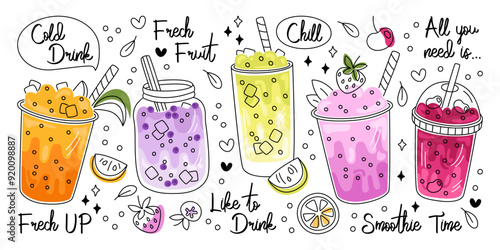 Cold
Drink
Frech
Fruit
Chill
All you
need is...
Frech UP
Like to
Drink
Smoothie Time
Adobe Stock | #920098887